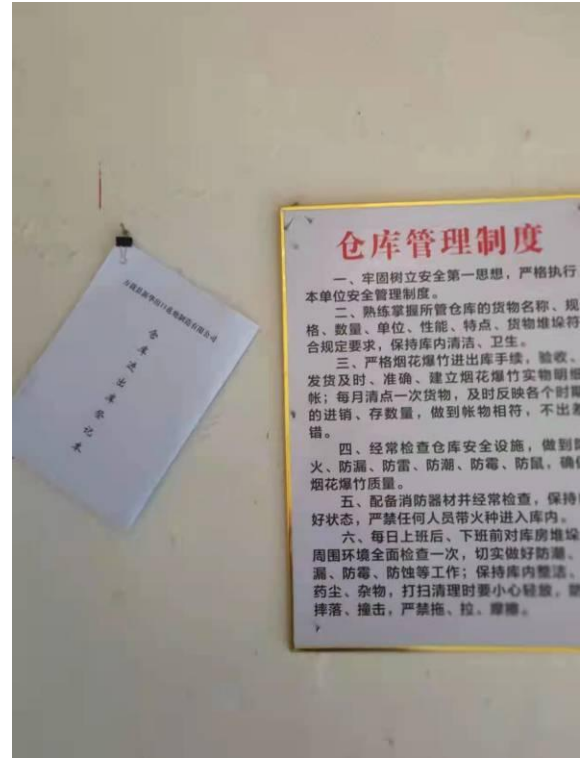 仓库进出库登记本
仓库管理制度
一、牢固树立安全第一思想，严格执行
本单位安全管理制度。
二、熟练掌握所管仓库的货物名称、规
格、数量、单位、性能、特点、货物堆垛符
合规定要求，保持库内清洁、卫生。
三、严格烟花爆竹进出库手续，验收、
发货及时、准确、建立烟花爆竹实物明细
帐；每月清点一次货物，及时反映各个时期
的进销、存数量，做到帐物相符，不出差
错。
四、经常检查仓库安全设施，做到防
火、防漏、防雷、防潮、防霉、防鼠，确保
烟花爆竹质量。
五、配备消防器材并经常检查，保持
好状态，严禁任何人员带火种进入库内。
六、每日上班后、下班前对库房堆垛
周围环境全面检查一次，切实做好防潮、
漏、防霉、防蚀等工作；保持库内整洁、
药尘、杂物，打扫清理时要小心轻放，防
摔落、撞击，严禁拖、拉、摩擦。